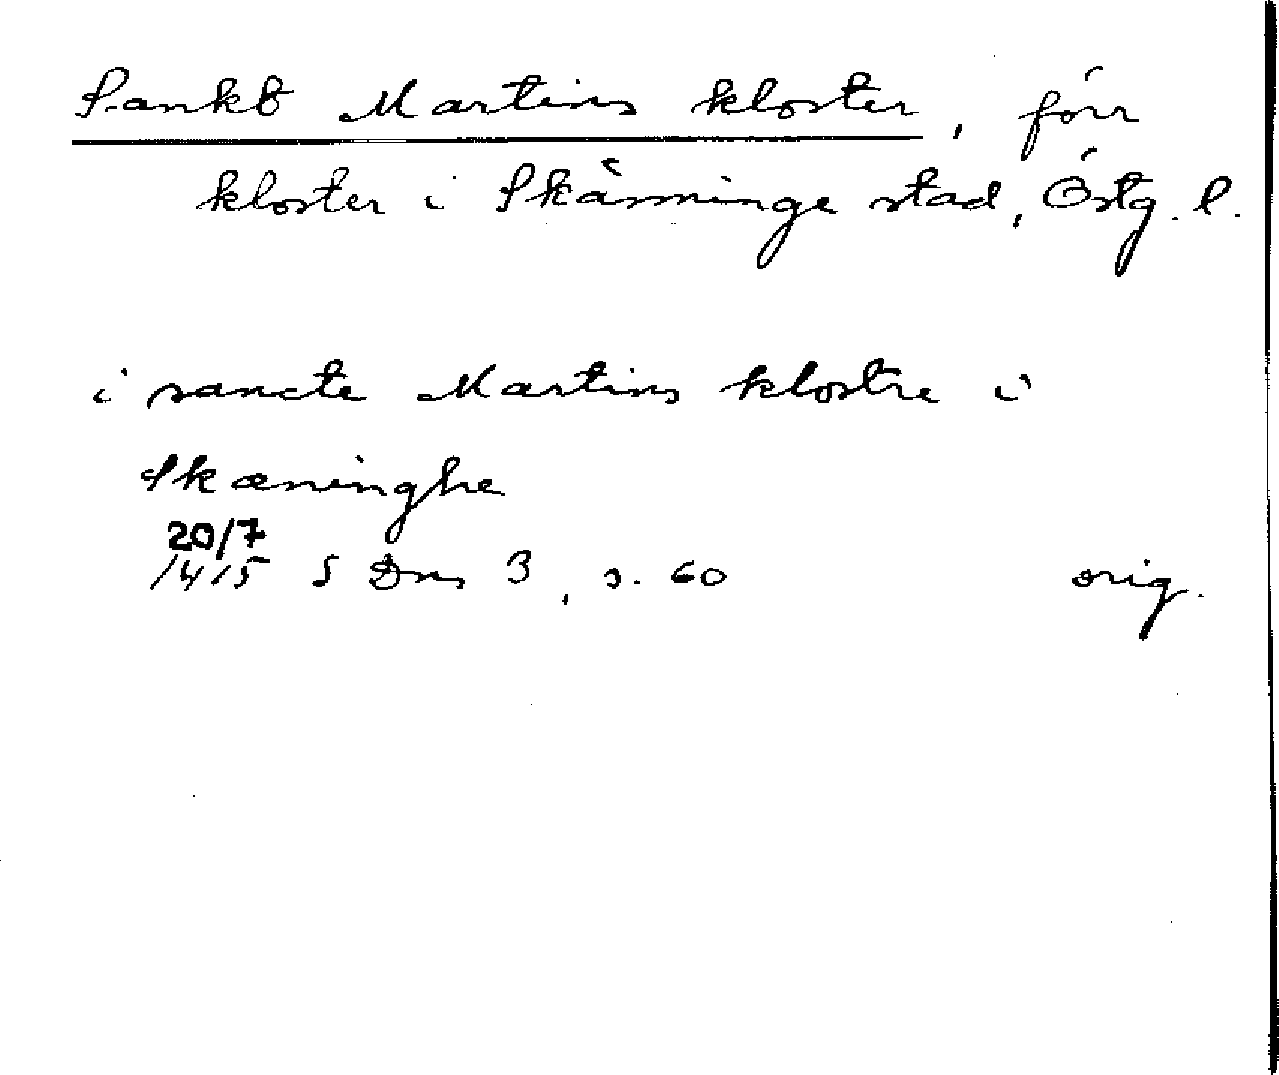 Sankt Martins kloster, förr
kloster i Skänninge stad, Östg. l.
i sancte Martins klostre i
Skæninghe
20/7
1415 SDns 3, s. 60 orig.